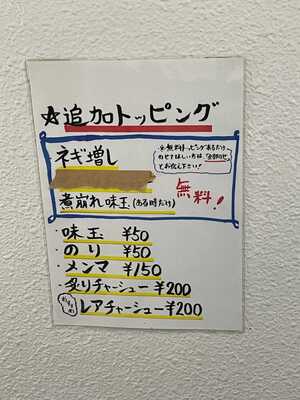 ☆追加トッピング
ネギ増し
煮崩れ味玉(ある時だけ)
※無料トッピングあるだけ
のせてほしい方は、「全部のせ」
とお伝え下さい!
無料!
・味玉 ¥50
・のり ¥50
・メンマ ¥150
・炙りチャーシュー ¥200
おすすめ レアチャーシュー ¥200